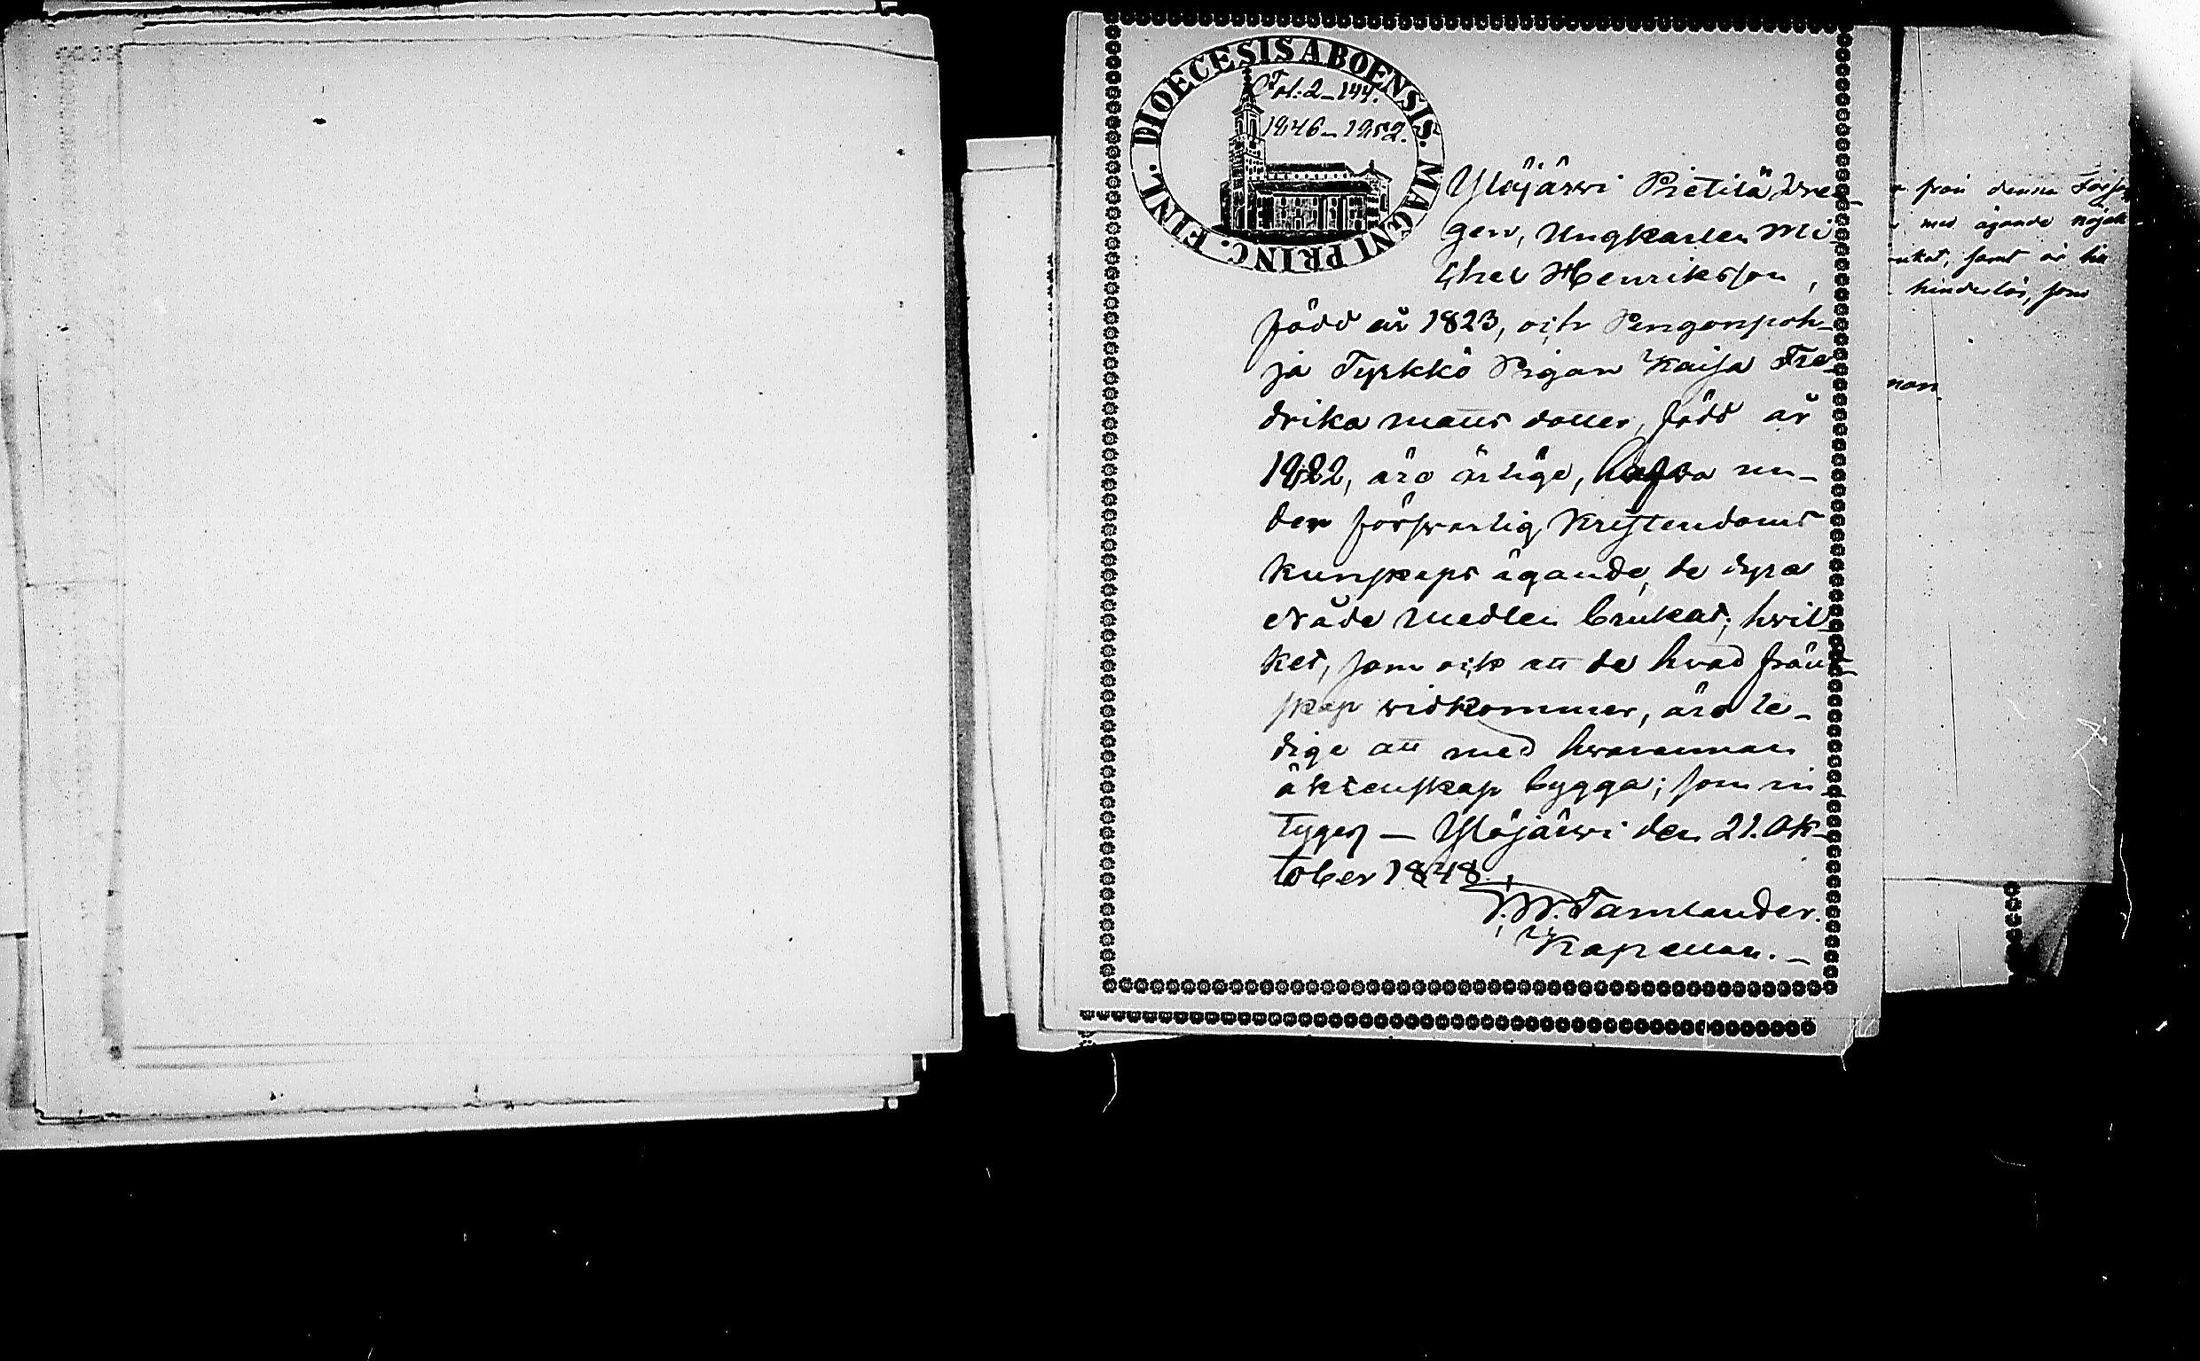 DIOECESIS ABOENSIS. MAGNI PRINC. FINL.
Fol. 2-144.
1846-1852.
Ylöjärwi Pietilä Dre-
gen, Ungkarlen Mi-
chel Henriksson,
född år 1823, och Pengonpoh-
ja Tyrkkö Pigan Kaisa Fre-
drika Matts dotter, född år
1822, äro ärlige, hafwa un-
der förswarlig Kristendoms
kunskaps ägande, de dyra
Nåde medlen brukat; hwil-
ket, som ock att de hwad fränd-
skap widkommer, äro le-
dige att med hwarannan
äktenskap bygga; som in-
tygas — Ylöjärwi den 21. Ok-
tober 1848.
Tamlander.
Kapellan. —
från denna Försam
med ägande nöjak-
ukat, samt är
hinderlös, som
man.